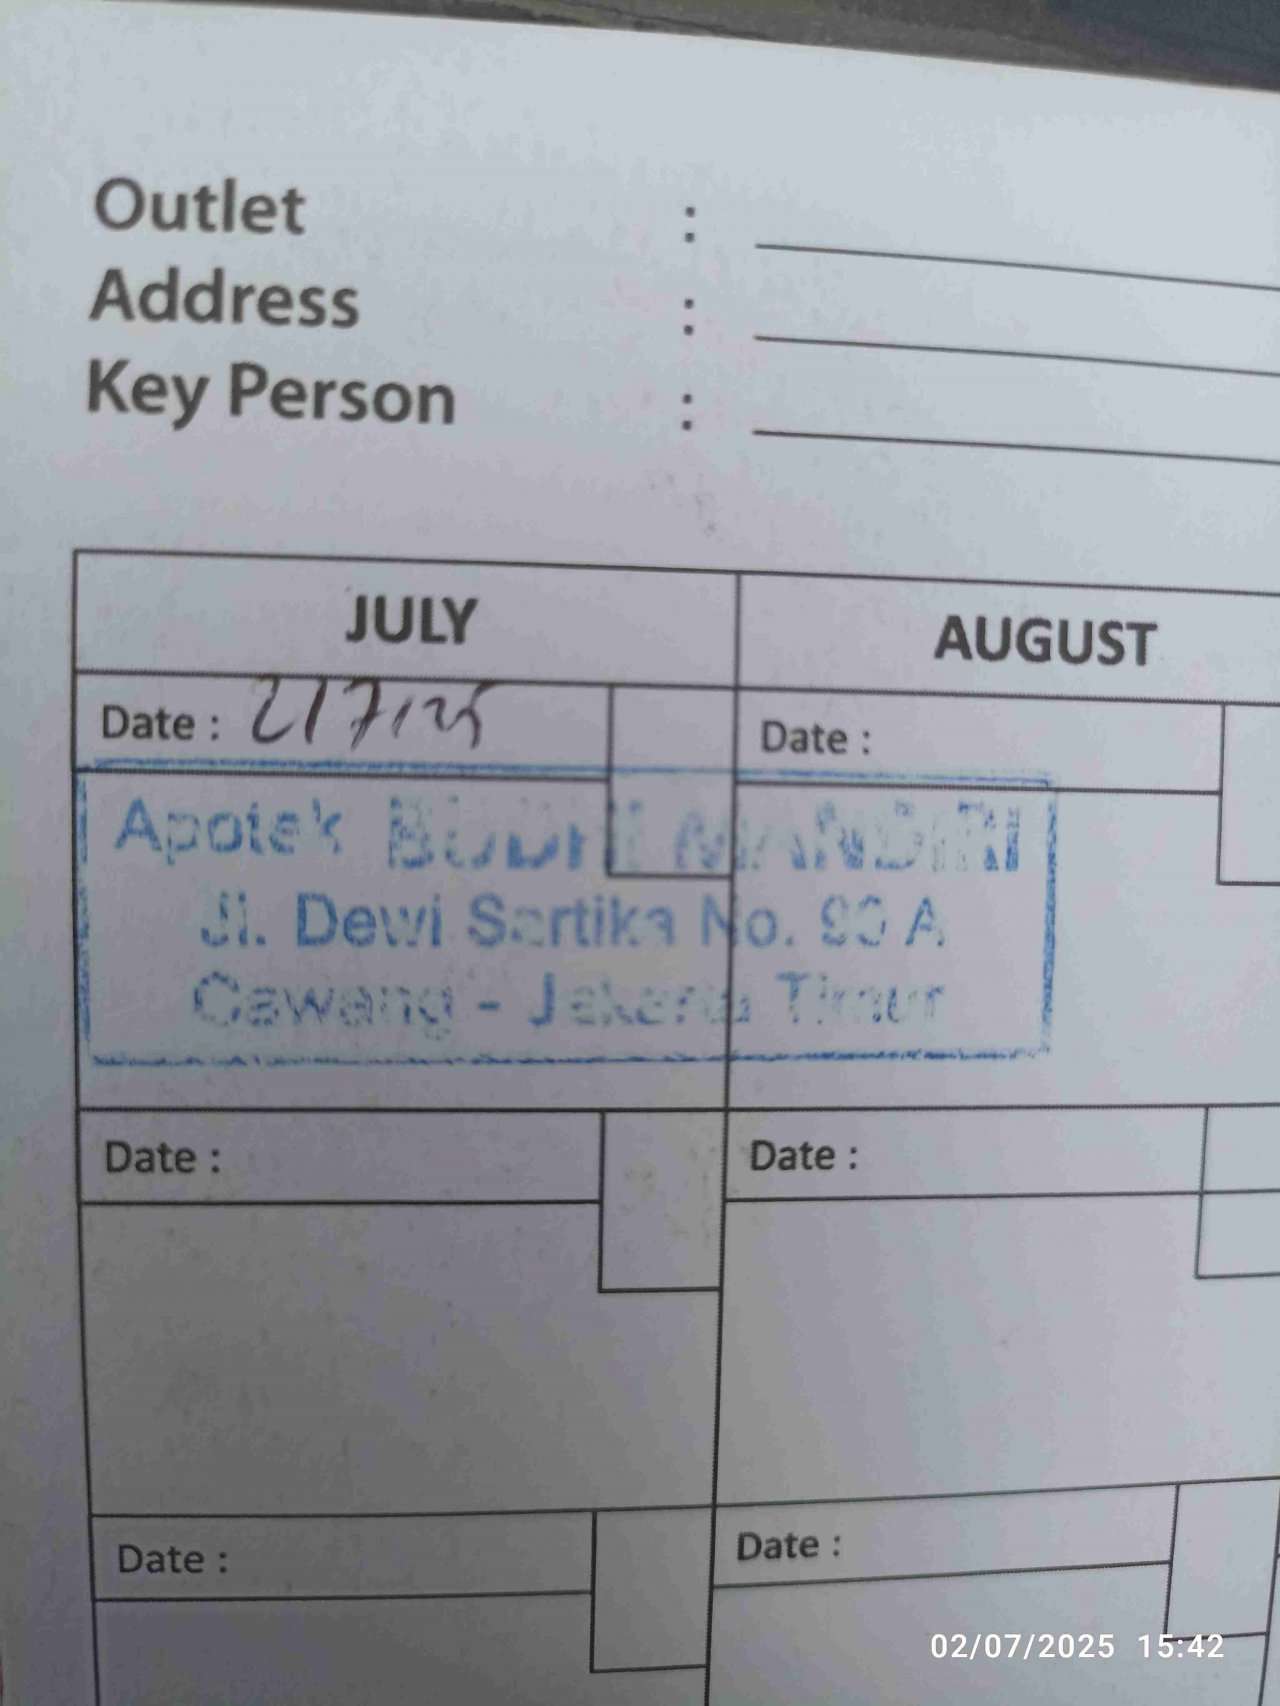 Outlet :
Address :
Key Person :
JULY AUGUST
Date : 2/7/25 Date :
Apotek BUDHI MANDIRI
Jl. Dewi Sartika No. A
Cawang - Jakarta Timur
Date : Date :
Date : Date :
02/07/2025 15:42